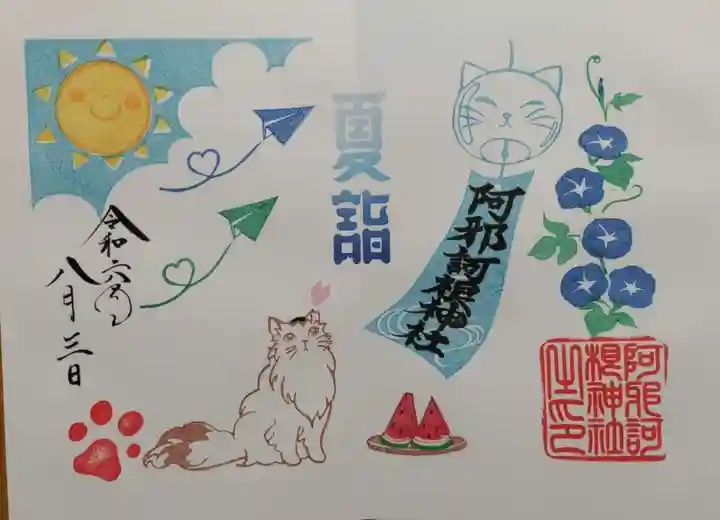 夏詣
阿邪訶根神社
阿邪訶
根神社
之印
令和六年
八月三日